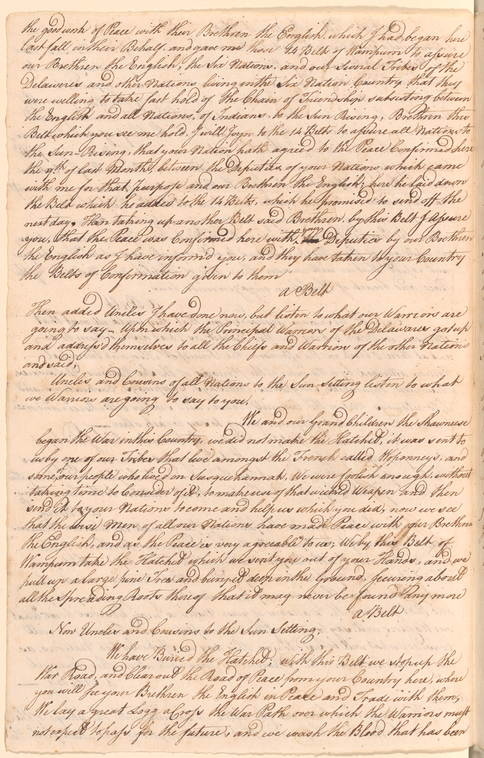 the good work of Peace with their Brethren the English, which I had began here
last fall in their Behalf, and gave me those 14 Belts of Wampum to assure
our Brethren the English, the Six Nations, and our Several Tribes of the
Delawares and other Nations living in the Six Nation Country that they
were willing to take fast hold of the Chain of Friendship subsisting between
the English and all Nations of Indians, to the Sun Rising, Brethren this
Belt which you see me hold, I will Joyn to the 14 Belts to assure all Nations to
the Sun-Rising, that your Nation hath agreed to the Peace Confirmed here
the 9th. of last Month, between the Deputies of your Nation, which came
with me for that purpose and our Brethren the English, here he laid down
the Belt which he added to the 14 Belts, which he promised to send off the
next day. Then taking up another Belt said Brethren, by this Belt I assure
you, that the Peace was Confirmed here with Deputies by our Brethren
the English as I have informed you, and they have taken to your Country
the Belts of Confirmation given to them
a Belt
Then added Uncles I have done now, but listen to what our Warriors are
going to say. Upon which the Principal Warrior of the Delawares got up
and address'd themselves to all the Chiefs and Warriors of the other Nations
and said,
Uncles, and Cousins of all Nations to the Sun Setting listen to what
we Warriors are going to say to you,
We and our Grand Children the Shawnese
began the War in this Country, we did not make the Hatchet, it was sent to
us by one of our Tribes that live amongst the French called Woponneys, and
some our people who lived on Susquehannah, We were foolish enough, without
taking time to Consider of it, to make use of that wicked Weapon and then
send it to your Nations to come and help us which you did, now we see
that the wise Men of all our Nations have made Peace with our Brethren
the English, and as the Peace is very agreeable to us, We by this Belt of
Wampum take the Hatchet which we sent you out of your Hands, and we
pull up a large pine Tree and bury it deep in the Ground, securing about
all the spreading Roots thereof that it may never be found any more
a Belt
Now Uncles and Cousins to the Sun Setting.
We have Buried the Hatchet, with this Belt we stop up the
War Road, and Clear out the Road of Peace from your Country here, where
you will see your Brethren the English in Peace and Trade with them,
We lay a great Logg a Cross the War Path over which the Warriors must
not expect to pass for the future, and we wash the Blood that has been